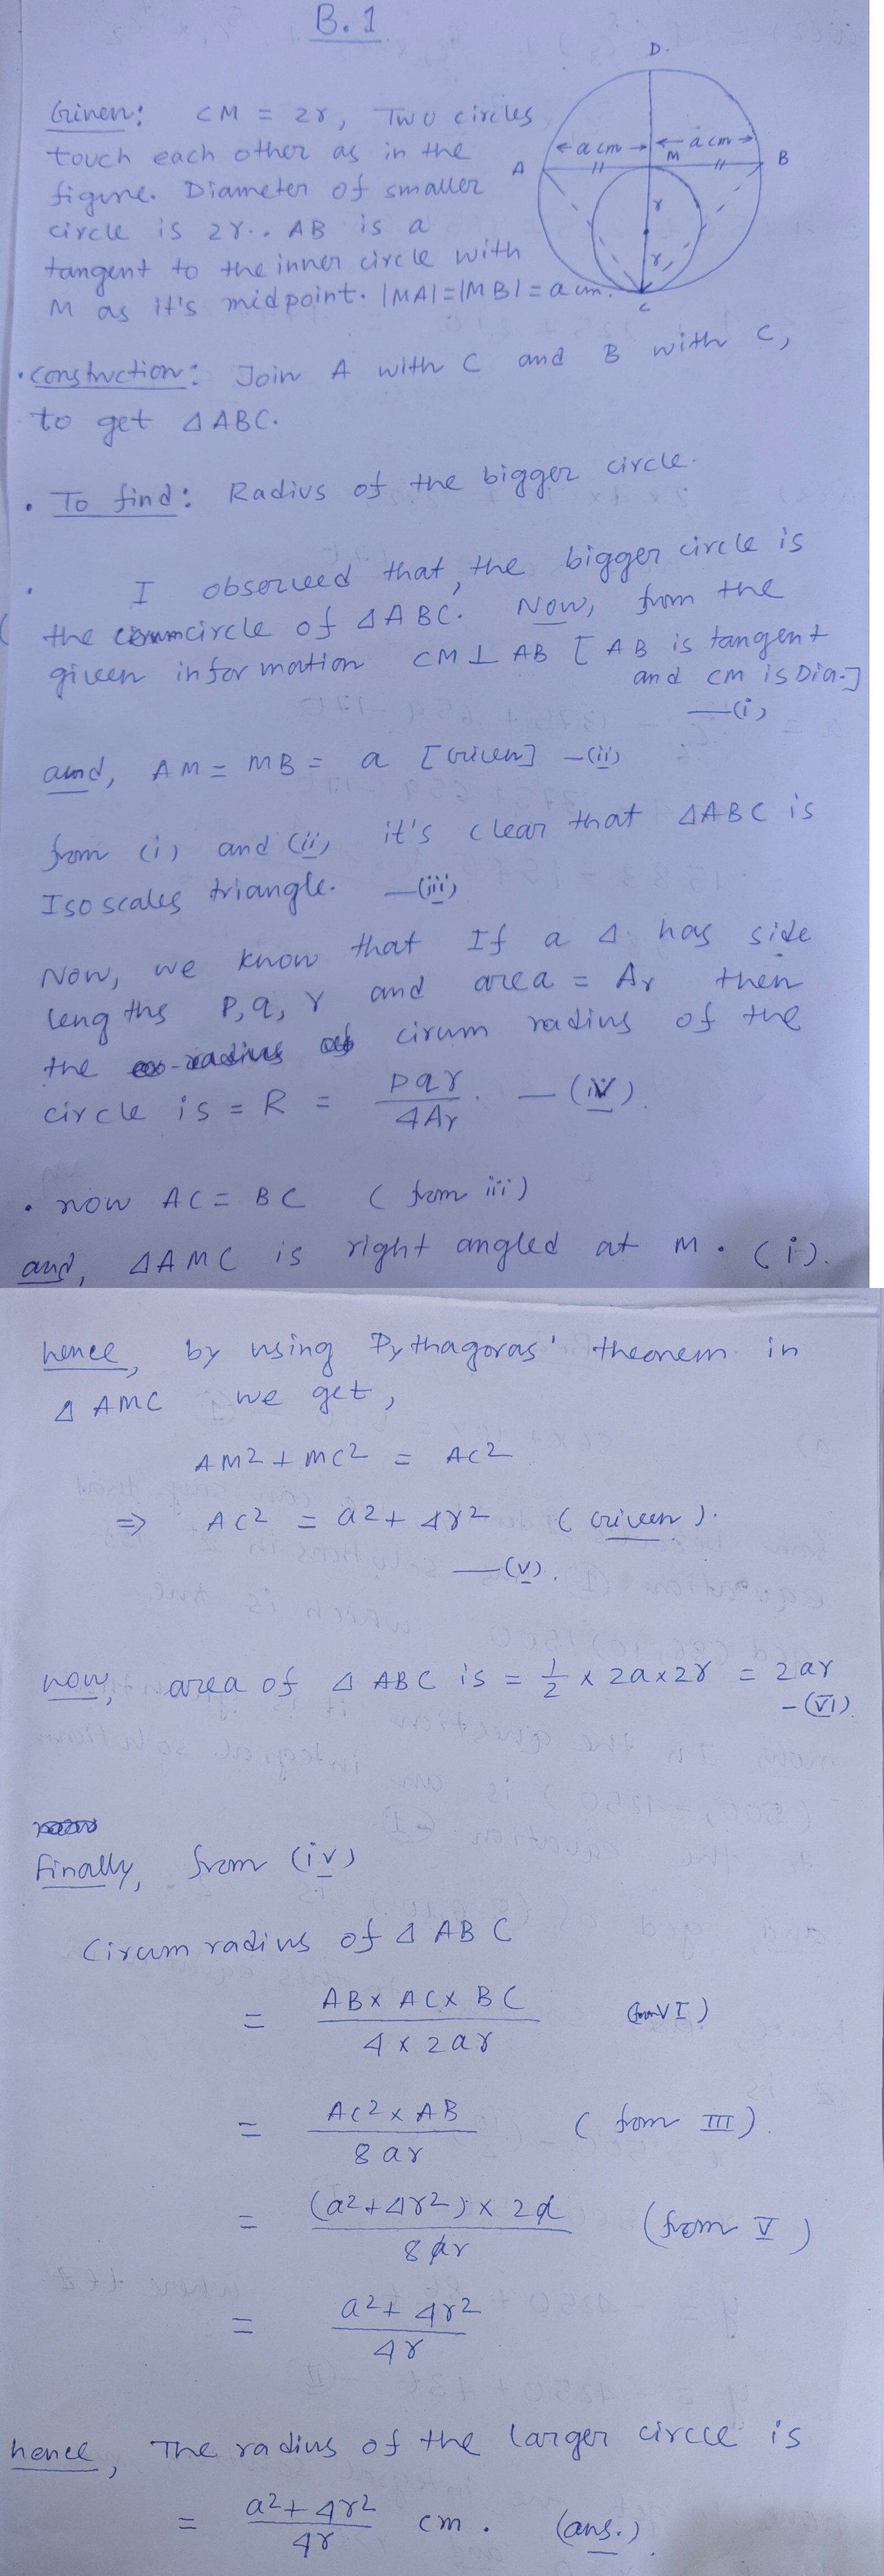 B.1
D.
Given: CM = 2r, Two circles
touch each other as in the
figure. Diameter of smaller
circle is 2r.. AB is a
tangent to the inner circle with
M as it's midpoint. |MA|=|MB|=a cm.
A
a cm
a cm
M
B
r
r
C
• Construction: Join A with C and B with C,
to get ΔABC.
• To find: Radius of the bigger circle.
• I observed that, the bigger circle is
the circumcircle of ΔABC. Now, from the
given information CM ⊥ AB [AB is tangent
and CM is Dia.]
—(i)
and, AM = MB = a [Given] —(ii)
from (i) and (ii) it's clear that ΔABC is
Isoscales triangle. —(iii)
Now, we know that If a Δ has side
lengths p, q, r and area = Ar then
the circum radius of the
circle is = R = pqr/4Ar. —(iv).
• now AC = BC (from iii)
and, ΔAMC is right angled at M. (i).
hence, by using Pythagoras' theorem in
ΔAMC we get,
AM² + MC² = AC²
⇒ AC² = a² + 4r² (Given).
—(v).
now, area of ΔABC is = 1/2 × 2a × 2r = 2ar
—(VI)
Finally, from (iv)
Circum radius of ΔABC
= AB × AC × BC / 4 × 2ar (from VI)
= AC² × AB / 8ar (from III).
= (a² + 4r²) × 2a / 8ar (from V)
= a² + 4r² / 4r
hence, The radius of the larger circle is
= a² + 4r² / 4r cm. (ans.)